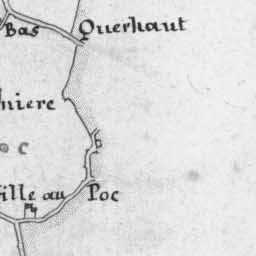 Bas Querhaut
niere
c
ille au Poc